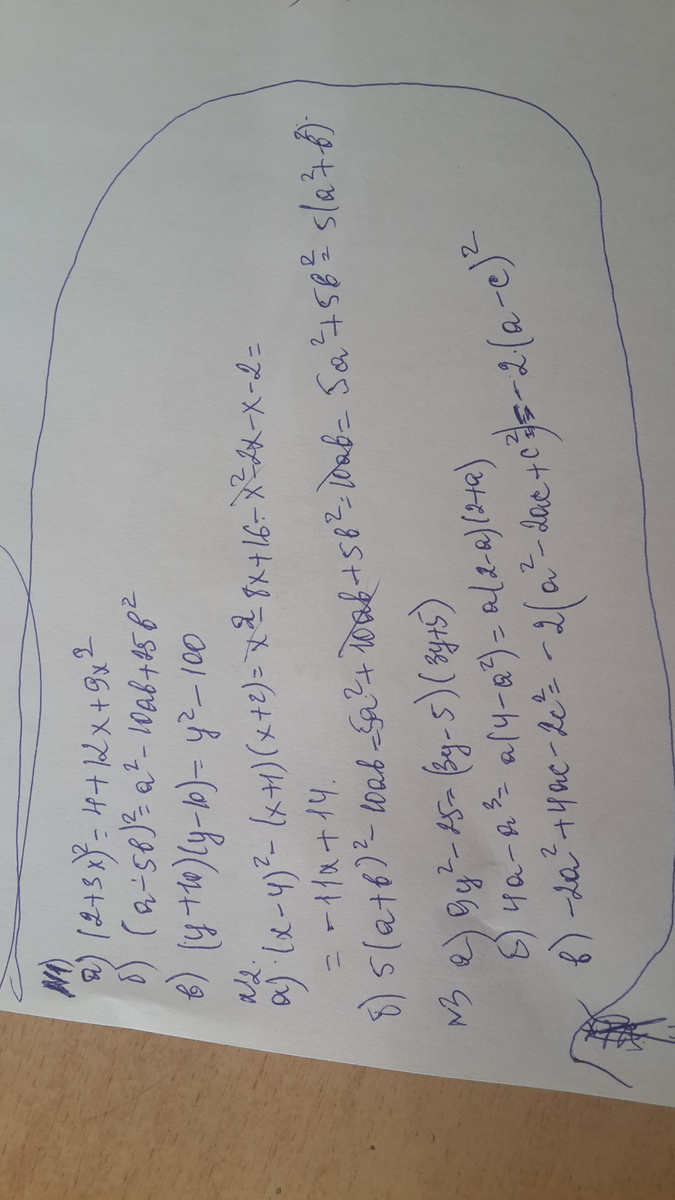 №1
а) (2+3x)² = 4+12x+9x²
б) (a-5b)² = a²-10ab+25b²
в) (y+10)(y-10) = y²-100
№2.
а) (x-4)² - (x+1)(x+2) = x²-8x+16-x²-2x-x-2=
= -11x+14.
б) 5(a+b)²-10ab=5a²+10ab+5b²-10ab= 5a²+5b²= 5(a²+b²).
№3 а) 9y²-25=(3y-5)(3y+5)
б) 4a-a³= a(4-a²)= a(2-a)(2+a)
в) -2a²+4ac-2c²= -2(a²-2ac+c²)=-2·(a-c)²